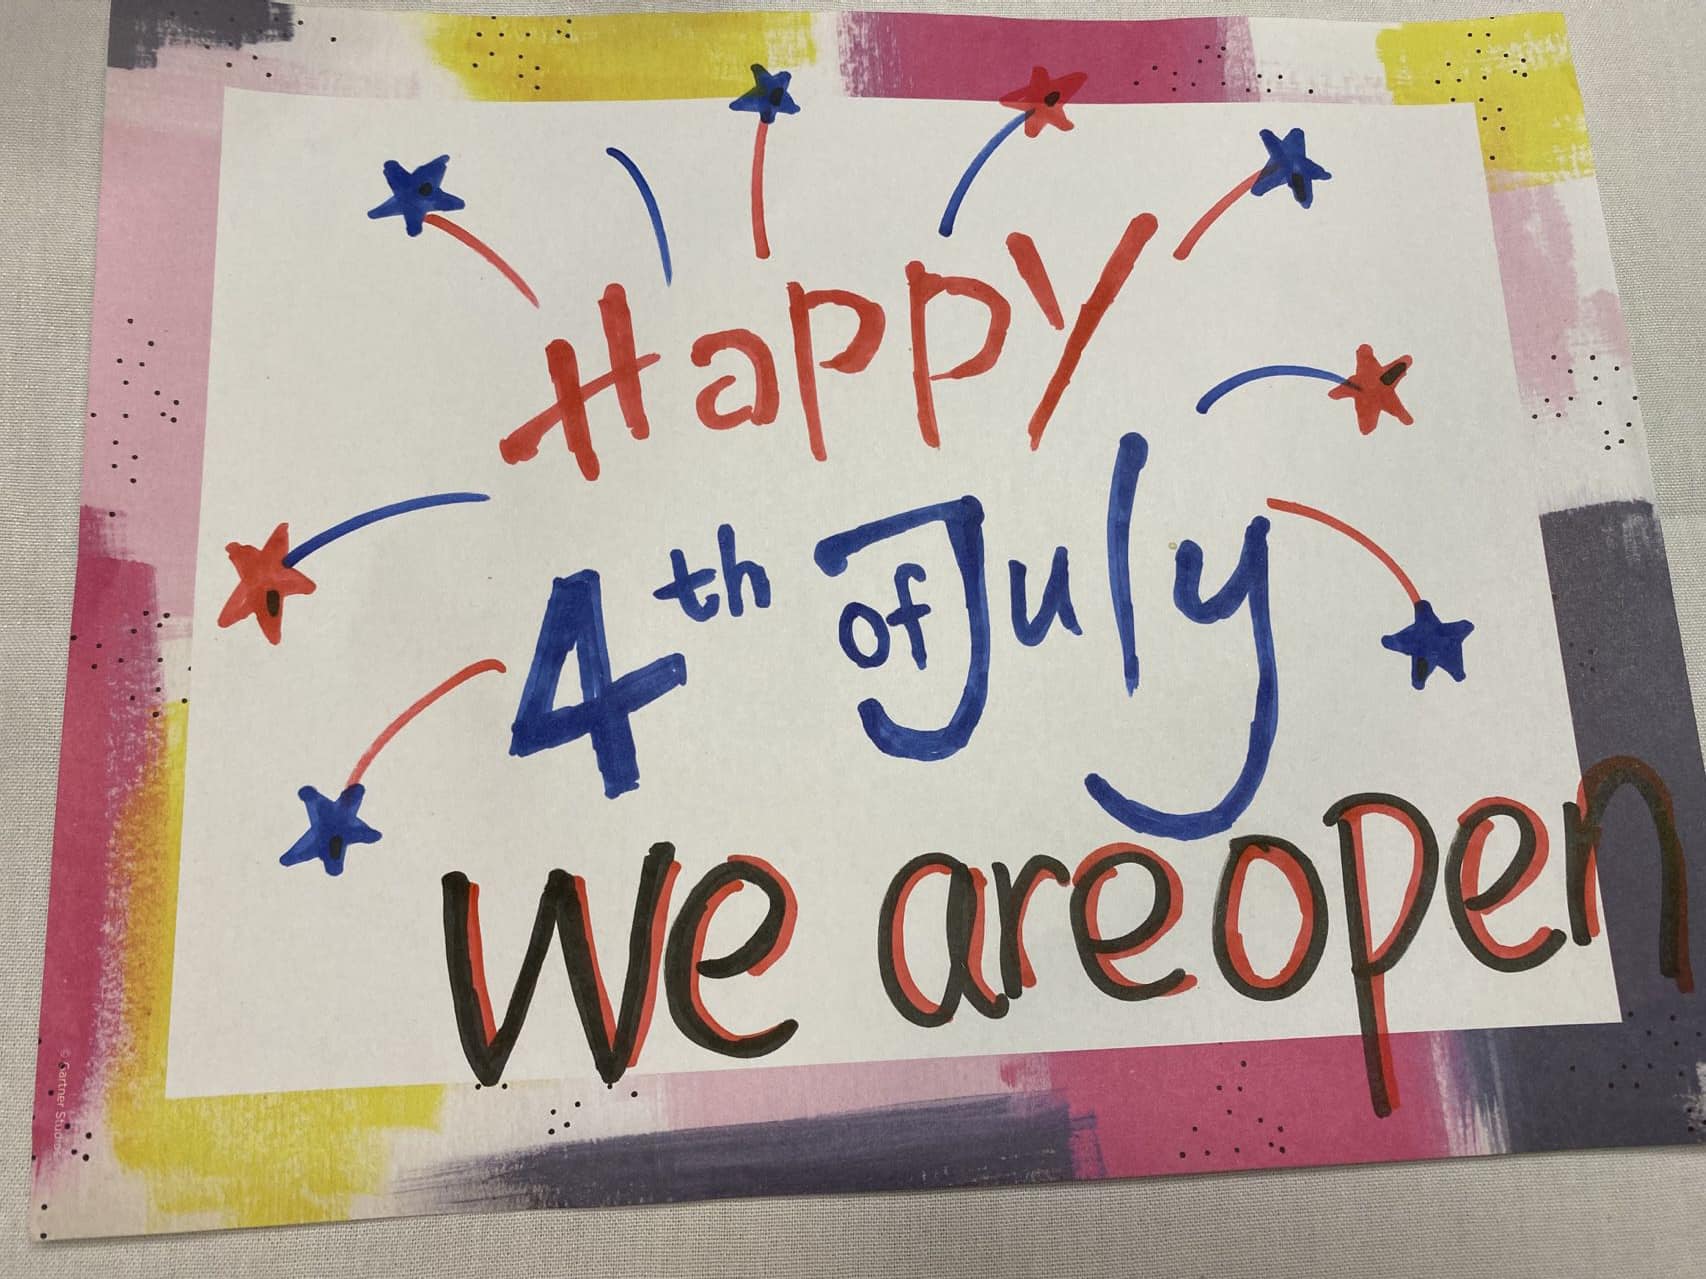 Happy
4th of July
We are open
© Gartner Studios